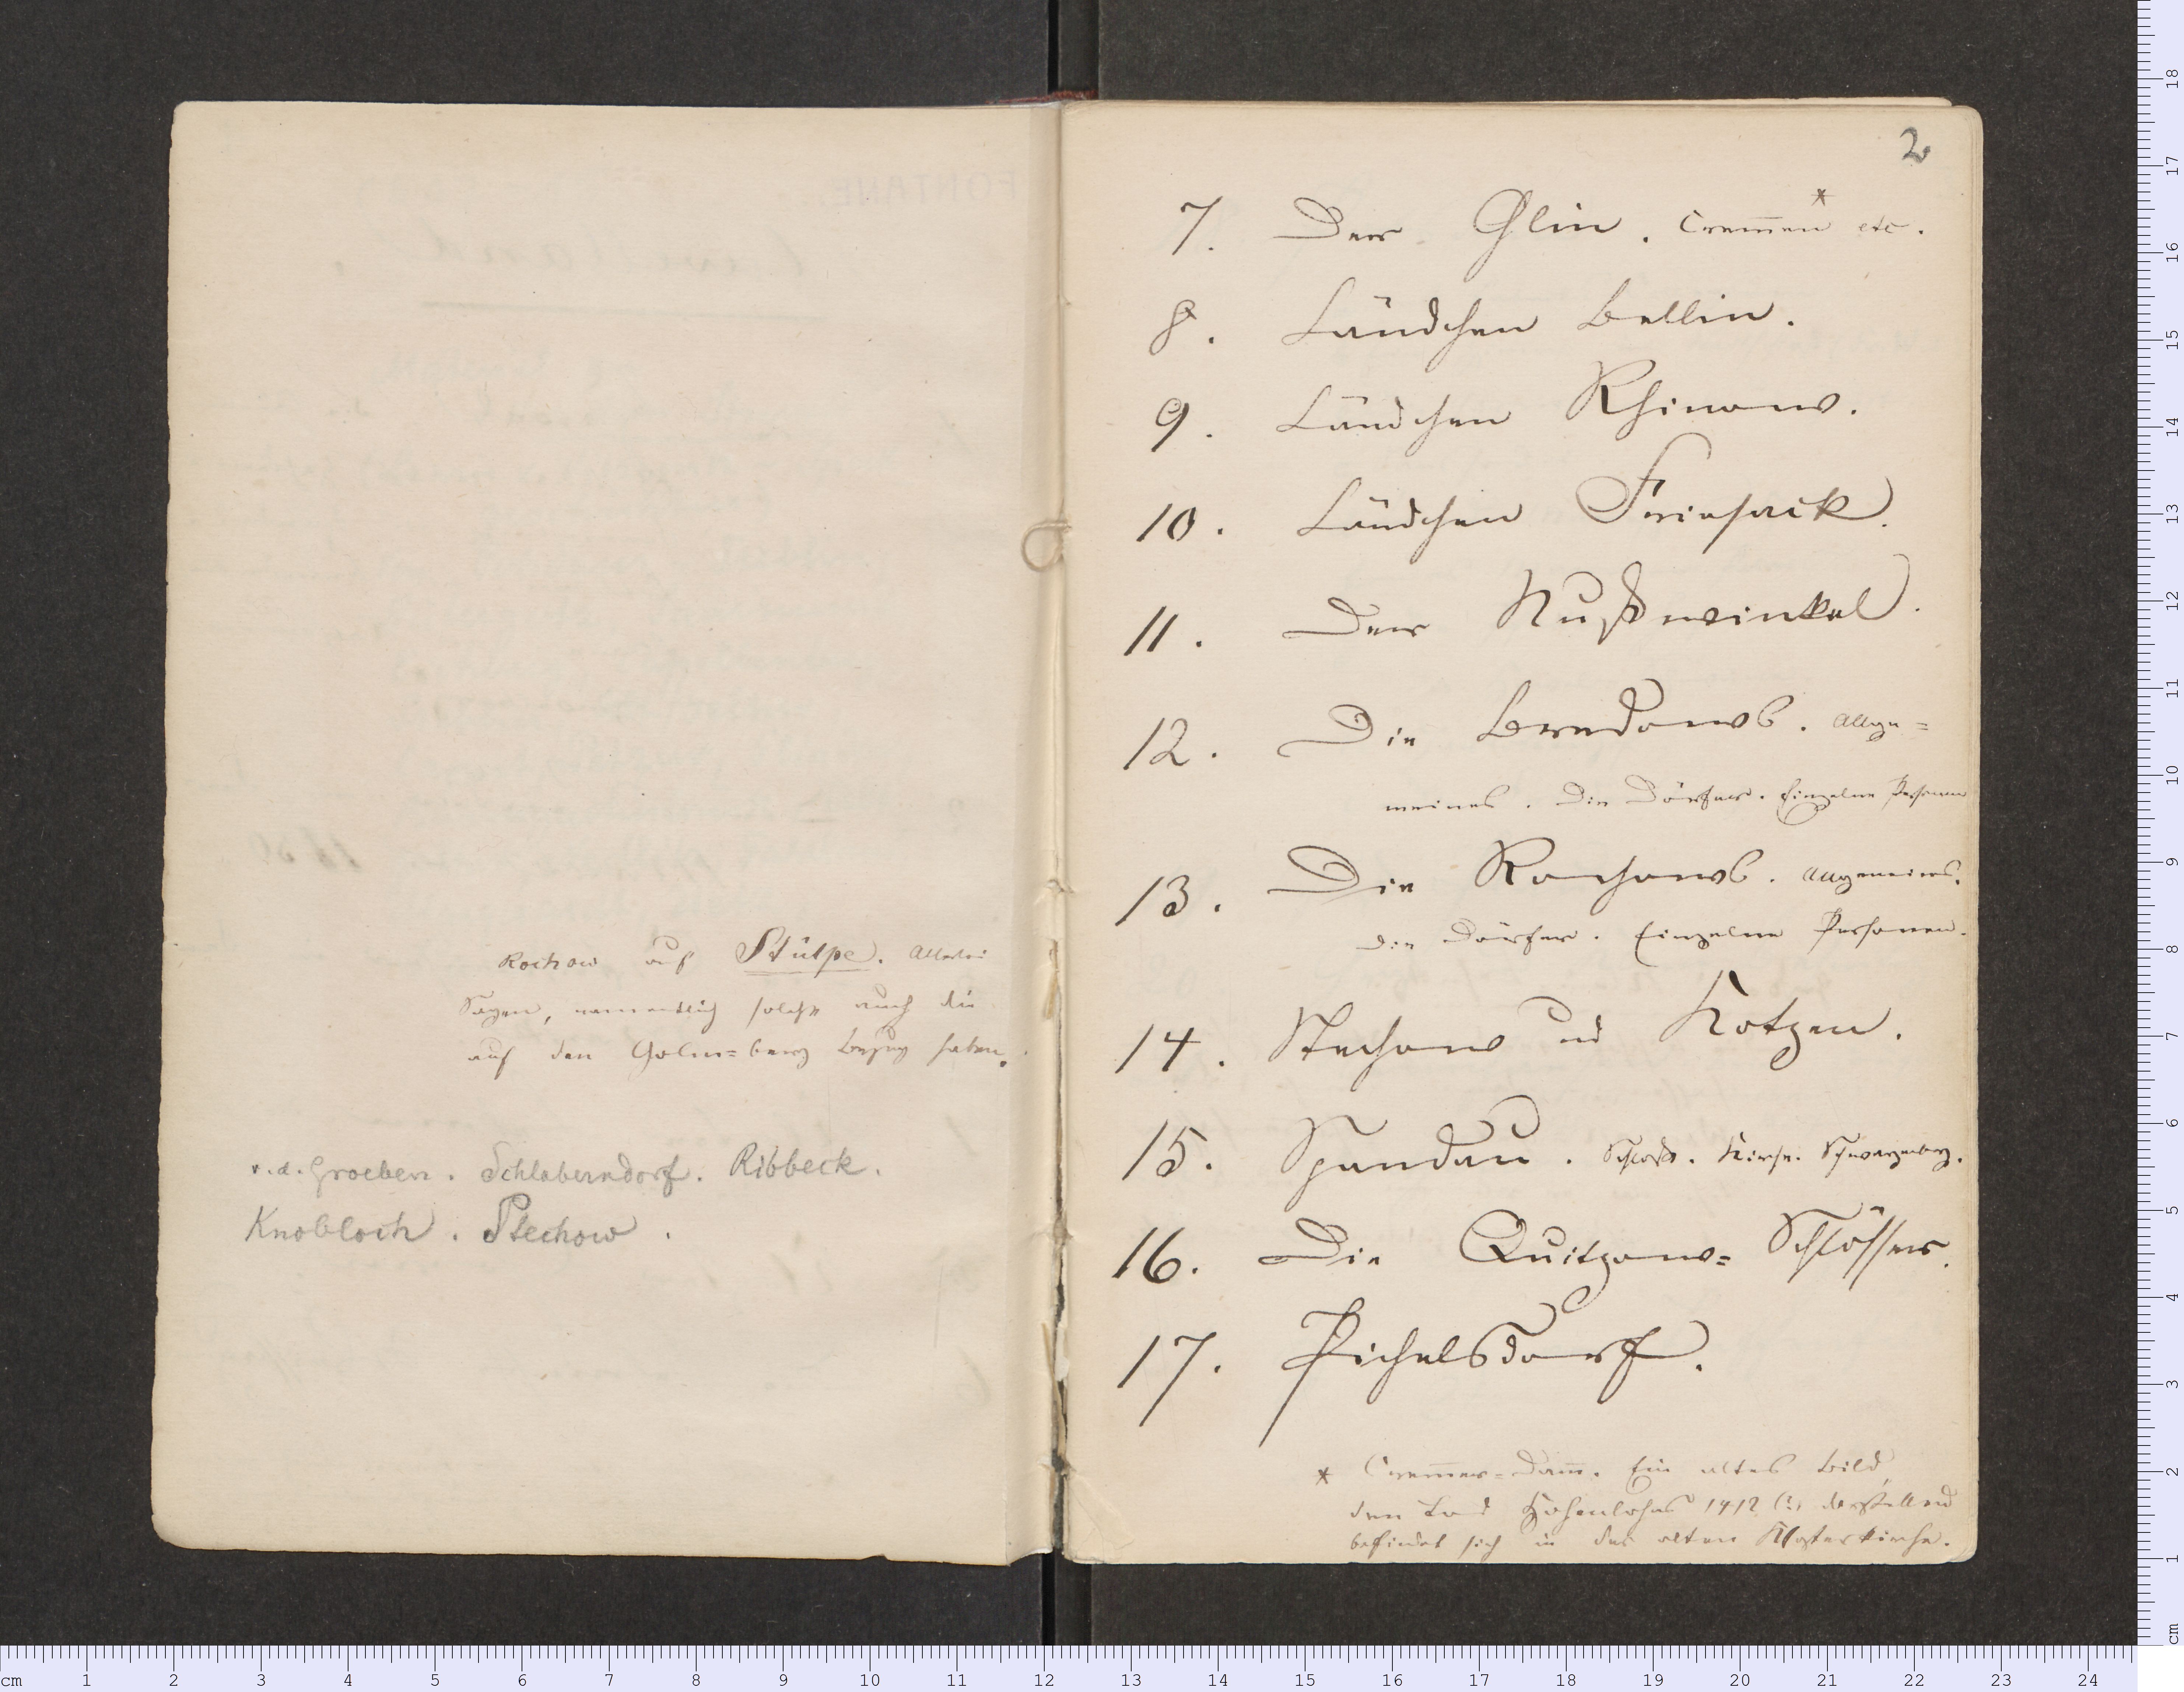 Rochow auf Stülpe. Allerlei
Sagen, namentlich solche auch die
auf den Golm=berg Bezug haben.
v. d. Groeben. Schlaberndorf. Ribbeck.
Knobloch. Stechow.
2
7. Der Glin. Cremen* etc.
8. Ländchen Bellin.
9. Ländchen Rhinow.
10. Ländchen Friesack.
11. Der Nußwinkel.
12. Die Bredows. Allge=
meines. Die Dörfer. Einzelne Personen
13. Die Rochows. Allgemeines.
Die Dörfer. Einzelne Personen.
14. Stechow und Kotzen.
15. Spandau. Schloß. Kirche. Schwarzenberg.
16. Die Quitzow=Schlösser.
17. Pichelsdorf.
* Cremer=Dam. Ein altes Bild,
den Tod Hohenlohes 1412 (?) darstellend
befindet sich in der alten Klosterkirche.